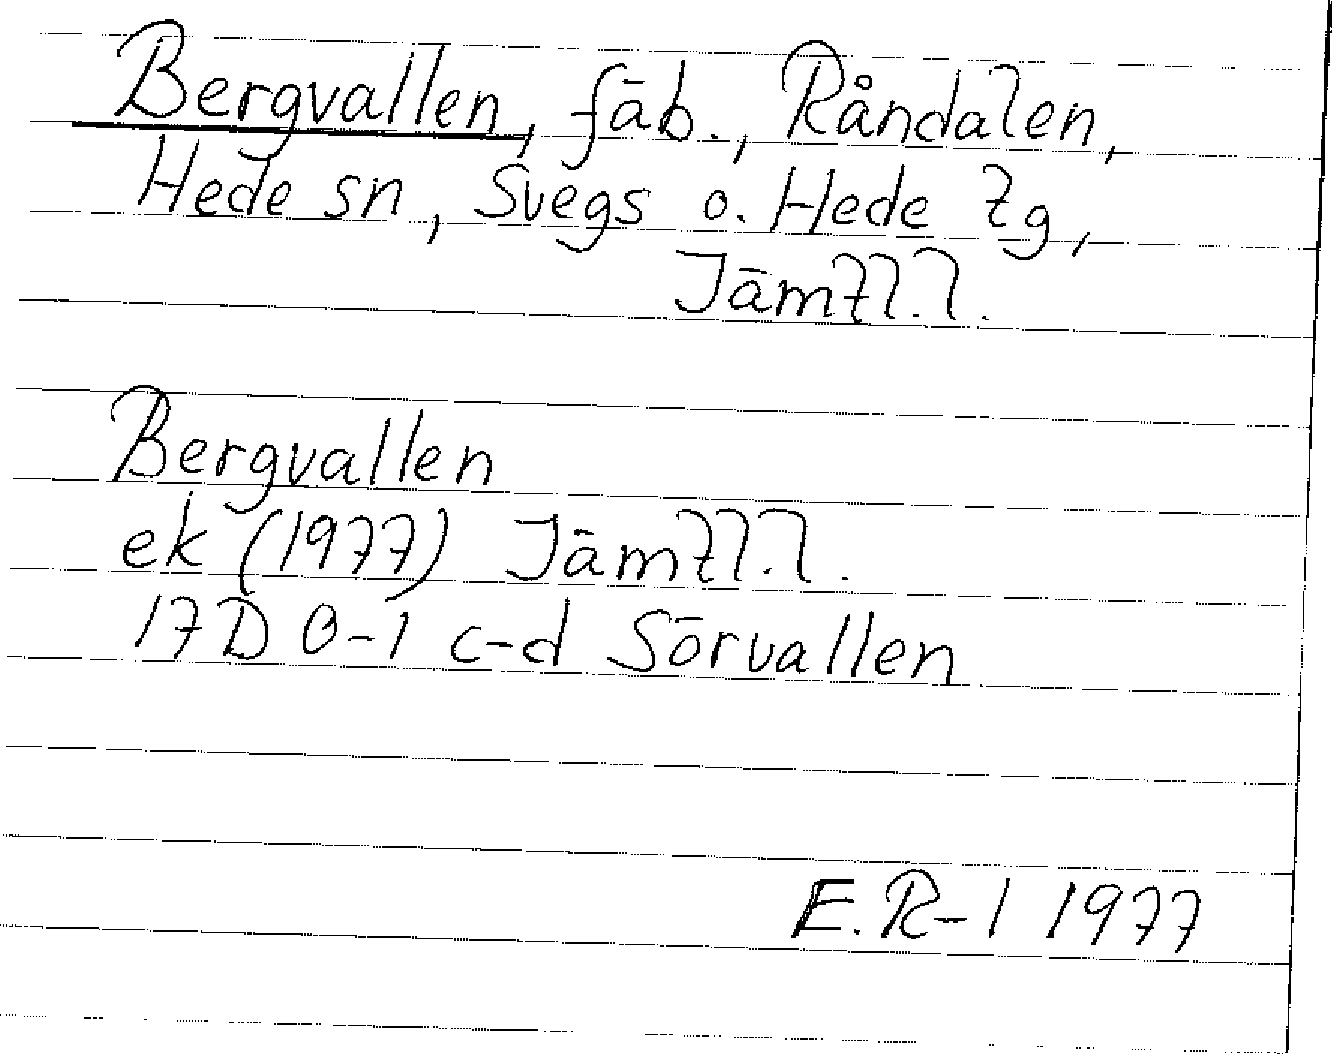 Bergvallen, fäb., Råndalen,
Hede sn, Svegs o. Hede tg,
Jämtl. l.
Bergvallen
ek (1977) Jämtl. l.
17D 0-1 c-d Sörvallen
E. R-l 1977